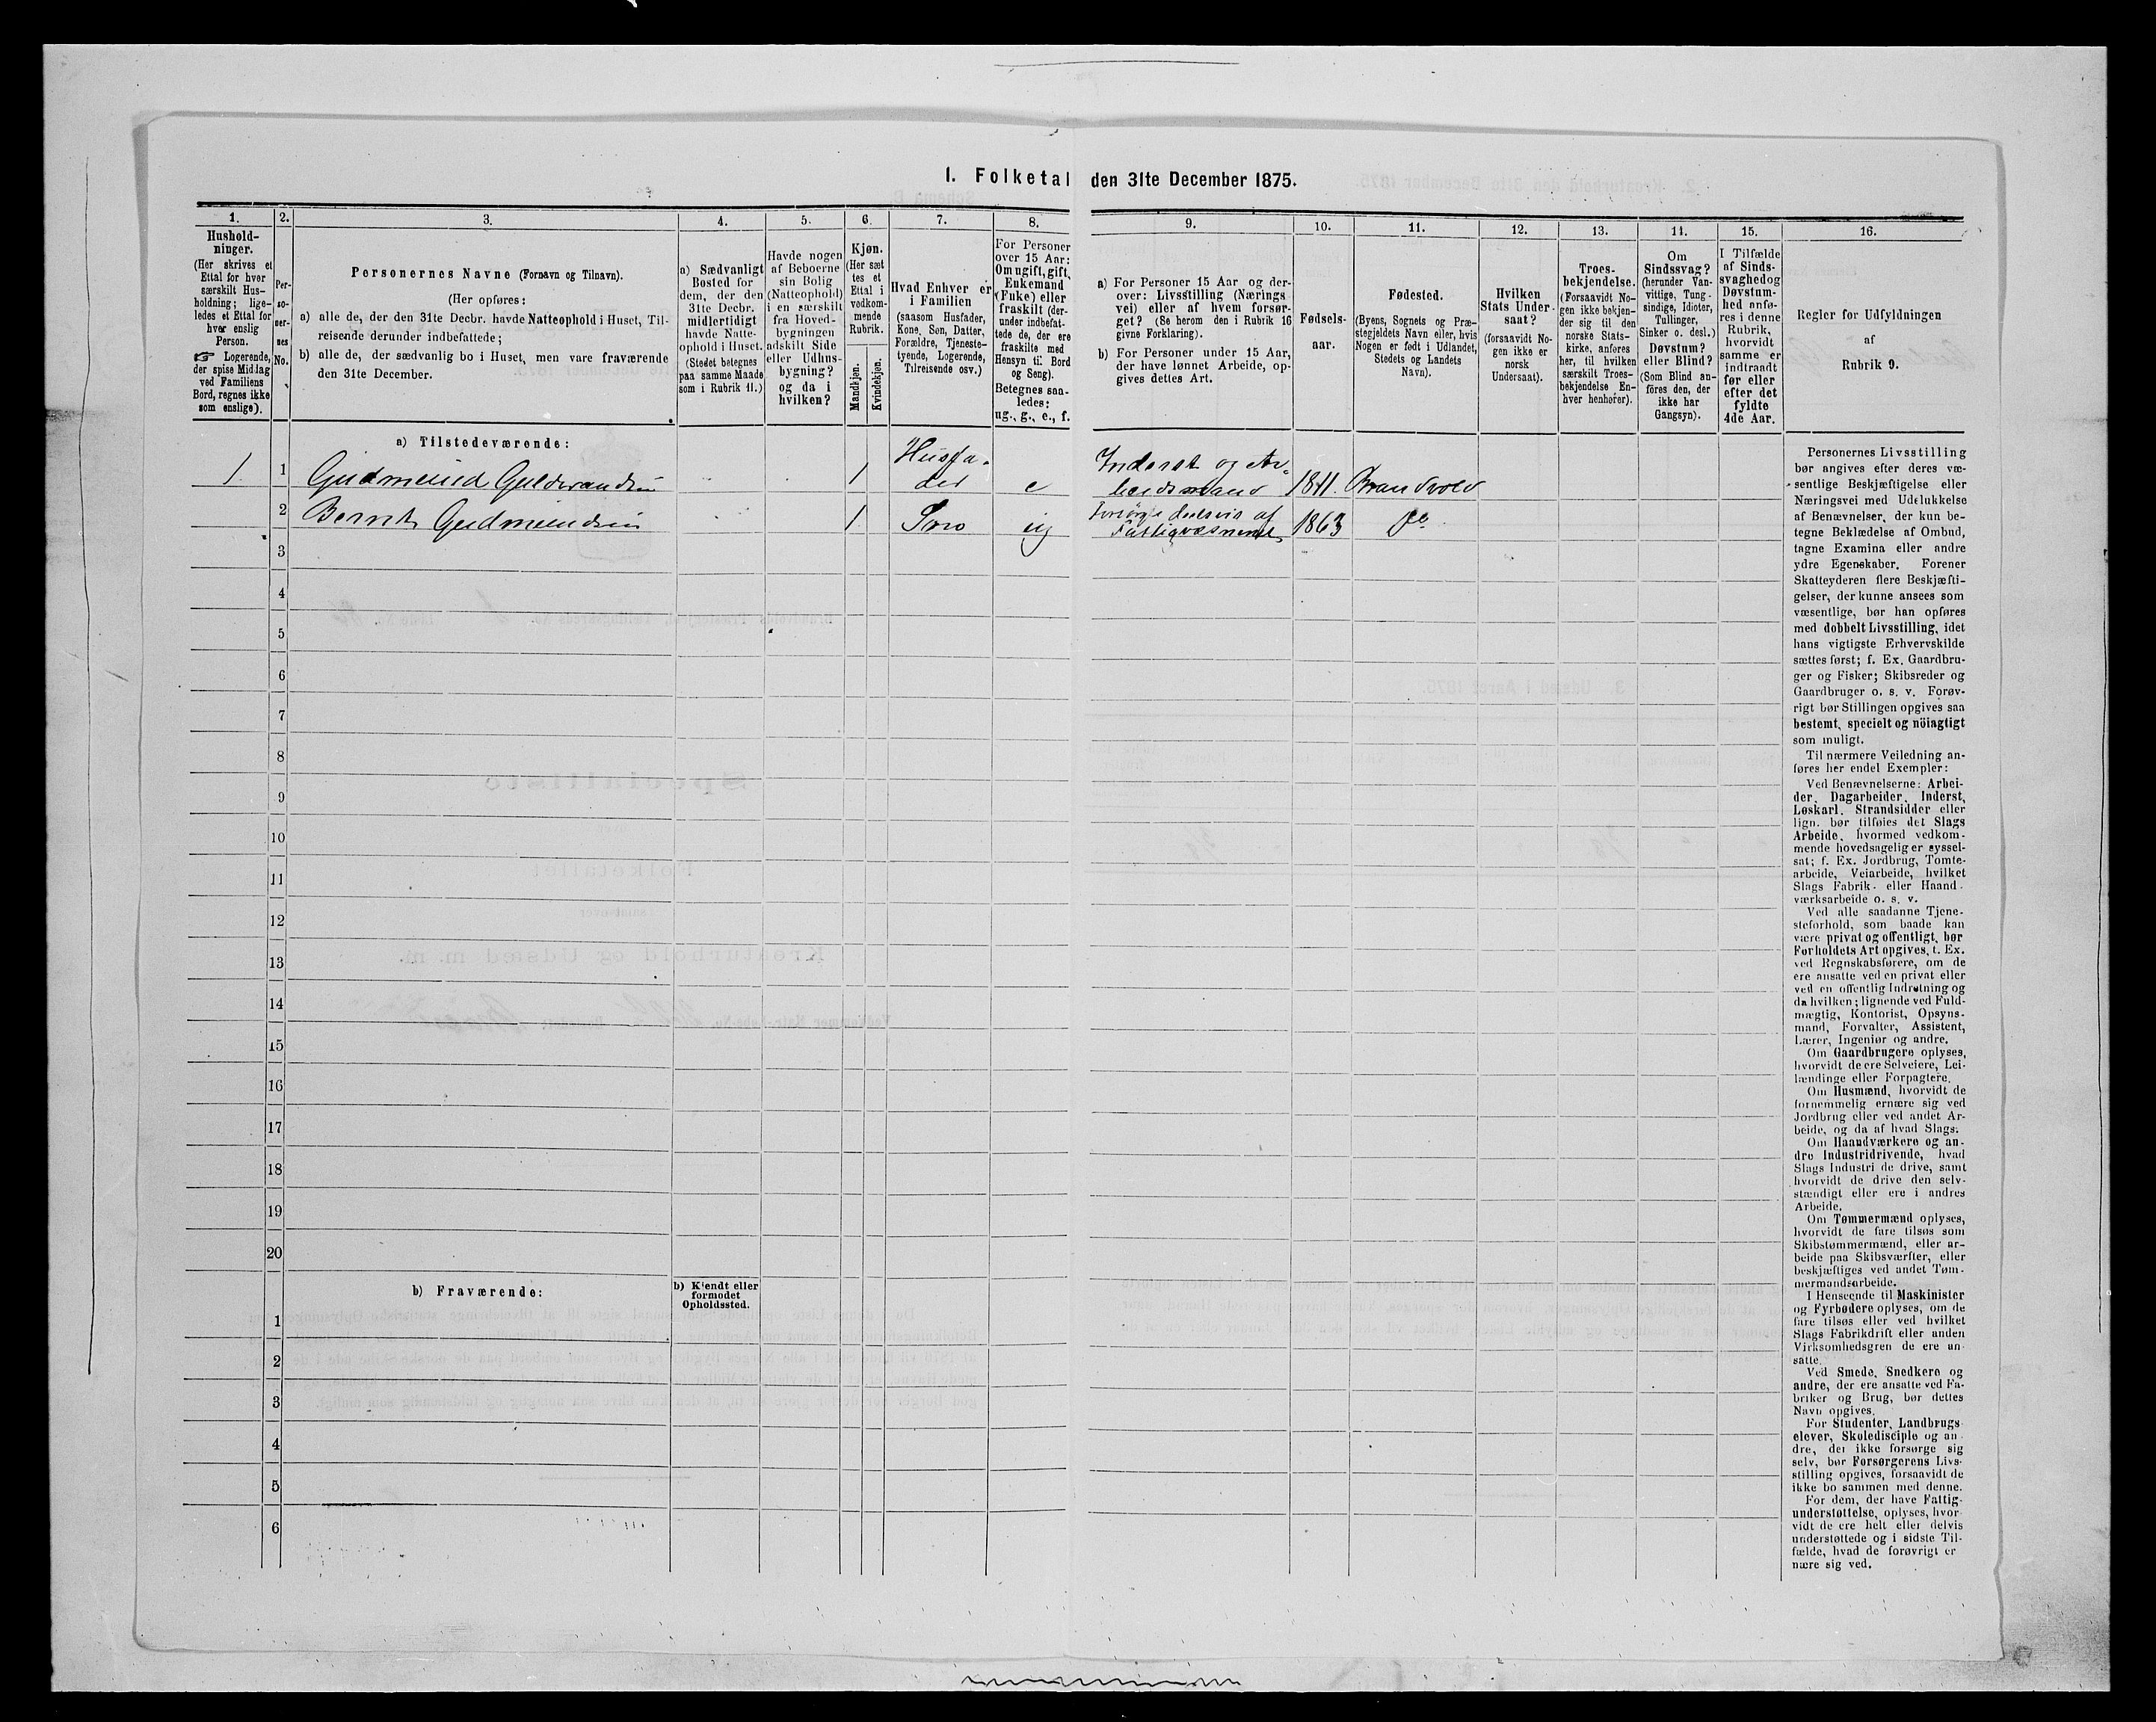 1. Folketal den 31te December 1875.
1. 2. 3. 4. 5. 6. 7. 8. 9. 10. 11. 12. 13. 14. 15. 16.
Hushold-
ninger.
(Her skrives et
Ettal for hver
særskilt Hus-
holdning; lige-
ledes et Ettal for
hver enslig
Person.
☞ Logerende,
der spise Middag
ved Familiens
Bord, regnes ikke
som enslige).
Per-
so-
ner-
nes
No.
Personernes Navne (Fornavn og Tilnavn).
(Her opføres:
a) alle de, der den 31te Decbr. havde Natteophold i Huset, Til-
reisende derunder indbefattede;
b) alle de, der sædvanlig bo i Huset, men vare fraværende
den 31te December.
a) Sædvanligt
Bosted for
dem, der den
31te Decbr.
midlertidigt
havde Natte-
ophold i Huset.
(Stedet betegnes
paa samme Maade
som i Rubrik 11.)
Havde nogen
af Beboerne
sin Bolig
(Natteophold)
i en særskilt
fra Hoved-
bygningen
adskilt Side
eller Udhus-
bygning?
og da i
hvilken?
Kjøn.
(Her sæt
tes et
Ettal i
vedkom-
mende
Rubrik.
Mandkjøn.
Kvindekjøn.
Hvad Enhver er
i Familien
(saasom Husfader,
Kone, Søn, Datter,
Forældre, Tjeneste-
tyende, Logerende,
Tilreisende osv.)
For Personer
over 15 Aar:
Om ugift, gift,
Enkemand
(Enke) eller
fraskilt (der-
under indbefat-
tede de, der ere
fraskilte med
Hensyn til Bord
og Seng).
Betegnes saa-
ledes:
ug., g., e., f.
a) For Personer 15 Aar og der-
over: Livsstilling (Nærings
vei) eller af hvem forsør-
get? (Se herom den i Rubrik 16
givne Forklaring).
b) For Personer under 15 Aar,
der have lønnet Arbeide, op-
gives dettes Art.
Fødsels-
aar.
Fødested.
(Byens, Sognets og Præ-
stegjeldets Navn eller, hvis
Nogen er født i Udlandet,
Stedets og Landets
Navn).
Hvilken
Stats Under-
saat?
(forsaavidt No-
gen ikke er
norsk
Undersaat).
Troes-
bekjendelse.
(Forsaavidt No-
gen ikke bekjen-
der sig til den
norske Stats-
kirke, anføres
her, til hvilken
særskilt Troes-
bekjendelse En-
hver henhører).
Om
Sindssvag?
(herunder Van-
vittige, Tung-
sindige, Idioter,
Tullinger,
Sinker o. desl.)
Døvstum?
eller Blind?
(Som Blind an-
føres den, der
ikke har
Gangsyn).
I Tilfælde
af Sinds-
svaghed og
Døvstum-
hed anfø-
res i denne
Rubrik,
hvorvidt
samme er
indtraadt
før eller
efter det
fyldte
4de Aar.
Regler for Udfyldningen
af
Rubrik 9.
a) Tilstedeværende:
1 1 Gudmund Guldbrandsen 1 Husfa-
der e Inderst og Ar-
beidsmand 1841. Brandvold
2 Bernt Gudmundsen 1 Søn ug Forsørges deelsvis af
Fattigvæsenet 1863 do
3
4
5
6
7
8
9
10
11
12
13
14
15
16
17
18
19
20
b) Fraværende:
b) Kjendt eller
formodet
Opholdssted.
1
2
3
4
5
6
Personernes Livsstilling
bør angives efter deres væ-
sentlige Beskjæftigelse eller
Næringsvei med Udelukkelse
af Benævnelser, der kun be-
tegne Beklædelse af Ombud,
tagne Examina eller andre
ydre Egenskaber. Forener
Skatteyderen flere Beskjæfti-
gelser, der kunne ansees som
væsentlige, bør han opføres
med dobbelt Livsstilling, idet
hans vigtigste Erhvervskilde
sættes først; f. Ex. Gaardbru-
ger og Fisker; Skibsreder og
Gaardbruger o. s. v. Forøv-
rigt bør Stillingen opgives saa
bestemt, specielt og nöiagtigt
som muligt.
Til nærmere Veiledning an-
føres her endel Exempler:
Ved Benævnelserne: Arbei-
der, Dagarbeider, Inderst,
Løskarl, Strandsidder eller
lign. bør tilføies det Slags
Arbeide, hvormed vedkom-
mende hovedsagelig er syssel-
sat; f. Ex. Jordbrug, Tomte-
arbeide, Veiarbeide, hvilket
Slags Fabrik- eller Haand-
værksarbeide o. s. v.
Ved alle saadanne Tjene-
steforhold, som baade kan
være privat og offentligt, bør
Forholdets Art opgives, t. Ex.
ved Regnskabsførere, om de
ere ansatte ved en privat eller
ved en offentlig Indretning og
da hvilken; lignende ved Fuld-
mægtig, Kontorist, Opsyns-
mand, Forvalter, Assistent,
Lærer, Ingeniør og andre.
Om Gaardbrugere oplyses,
hvorvidt de ere Selveiere, Lei-
lændinge eller Forpagtere.
Om Husmænd, hvorvidt de
fornemmelig ernære sig ved
Jordbrug eller ved andet Ar-
beide, og da af hvad Slags.
Om Haandværkere og an-
dre Industridrivende, hvad
Slags Industri de drive, samt
hvorvidt de drive den selv-
stændigt eller ere i andres
Arbeide.
Om Tømmermænd oplyses,
hvorvidt de fare tilsøs som
Skibstømmermænd, eller ar-
beide paa Skibsværfter, eller
beskjæftiges ved andet Tøm-
mermandsarbeide.
I Henseende til Maskinister
og Fyrbødere oplyses, om de
fare tilsøs eller ved hvilket
Slags Fabrikdrift eller anden
Virksomhedsgren de ere an-
satte.
Ved Smede, Snedkere og
andre, der ere ansatte ved Fa-
briker og Brug, bør dettes
Navn opgives.
For Studenter, Landbrugs
elever, Skoledisciple og an-
dre, der ikke forsørge sig
selv, bør Forsørgerens Livs-
stilling opgives, forsaavidt de
ikke bo sammen med denne.
For dem, der have Fattig-
understøttelse, oplyses, hvor-
vidt de ere helt eller delvis
understøttede og i sidste Til-
fælde, hvad de forøvrigt er-
nære sig ved.